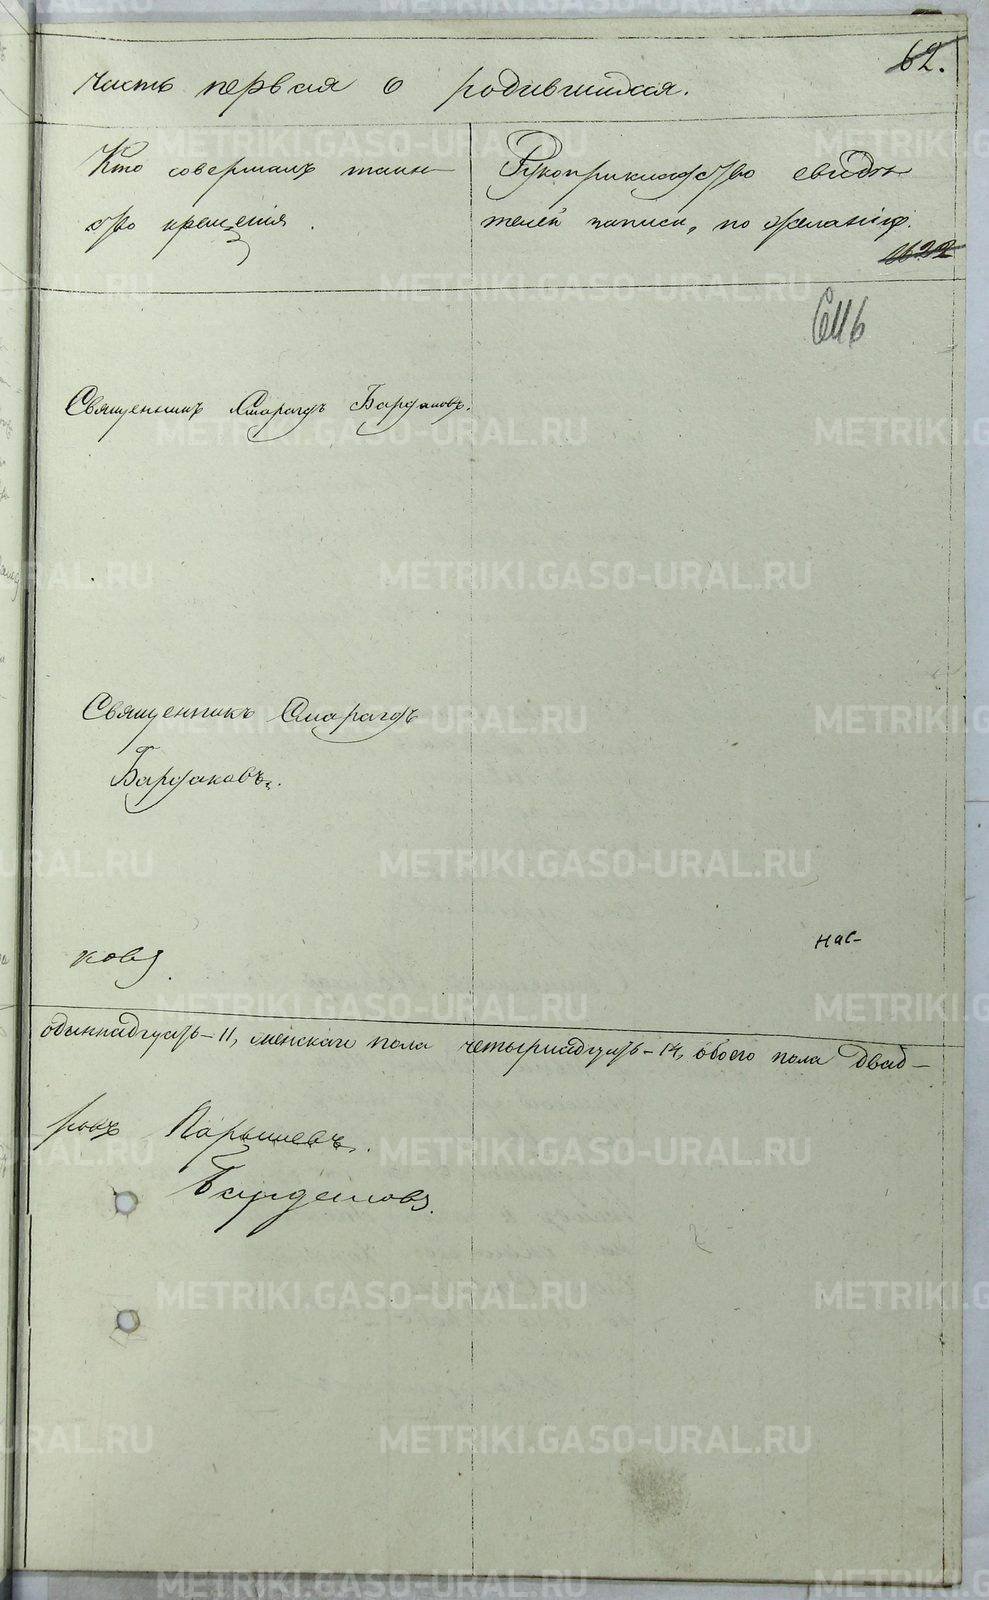 62.
часть первая о родившихся.
Кто совершалъ таин-
ство крещенія.
Рукоприкладство свидѣ-
телей записи, по желанію.
Священникъ Смарагдъ Бардаковъ.
Священникъ Смарагдъ
Бардаковъ.
ковъ.
нас-
одиннадцать-11, женскаго пола четырнадцать-14, обоего пола двад-
METRIKI.GASO-URAL.RU